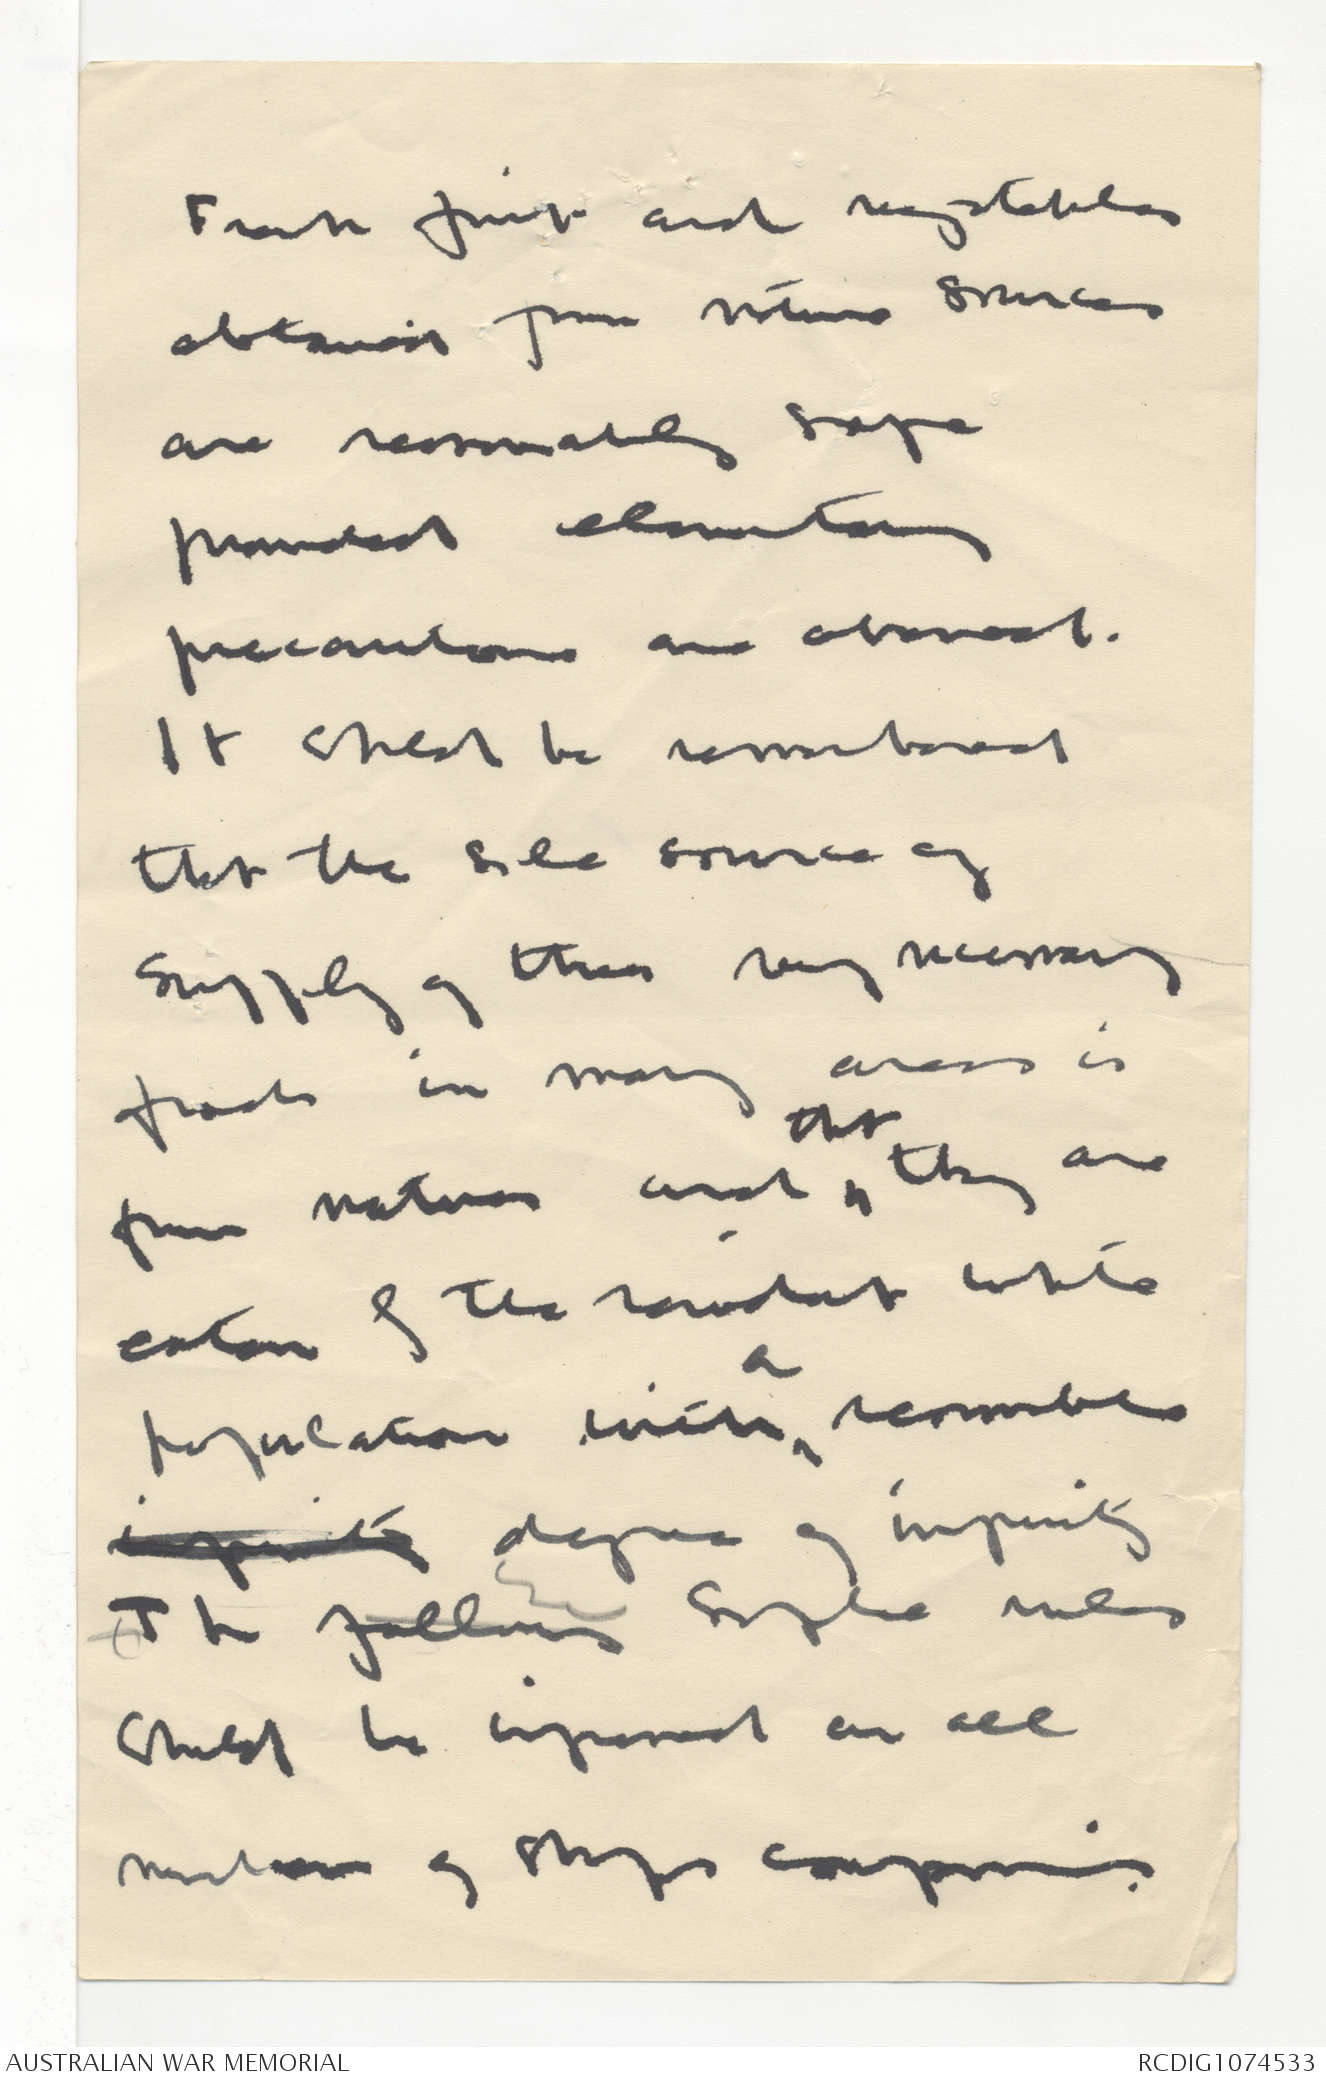 Fresh fruit and vegetables
obtained from native sources
are reasonably safe
provided elementary
precautions are observed.
It should be remembered
that the sole source of
supply of these very necessary
foods in many areas is
from natives and that they are
eaten by the resident white
population with a reasonable
impunity degree of impunity
The following simple rules
should be imposed on all
members of Ships companies.
AUSTRALIAN WAR MEMORIAL
RCDIG1074533